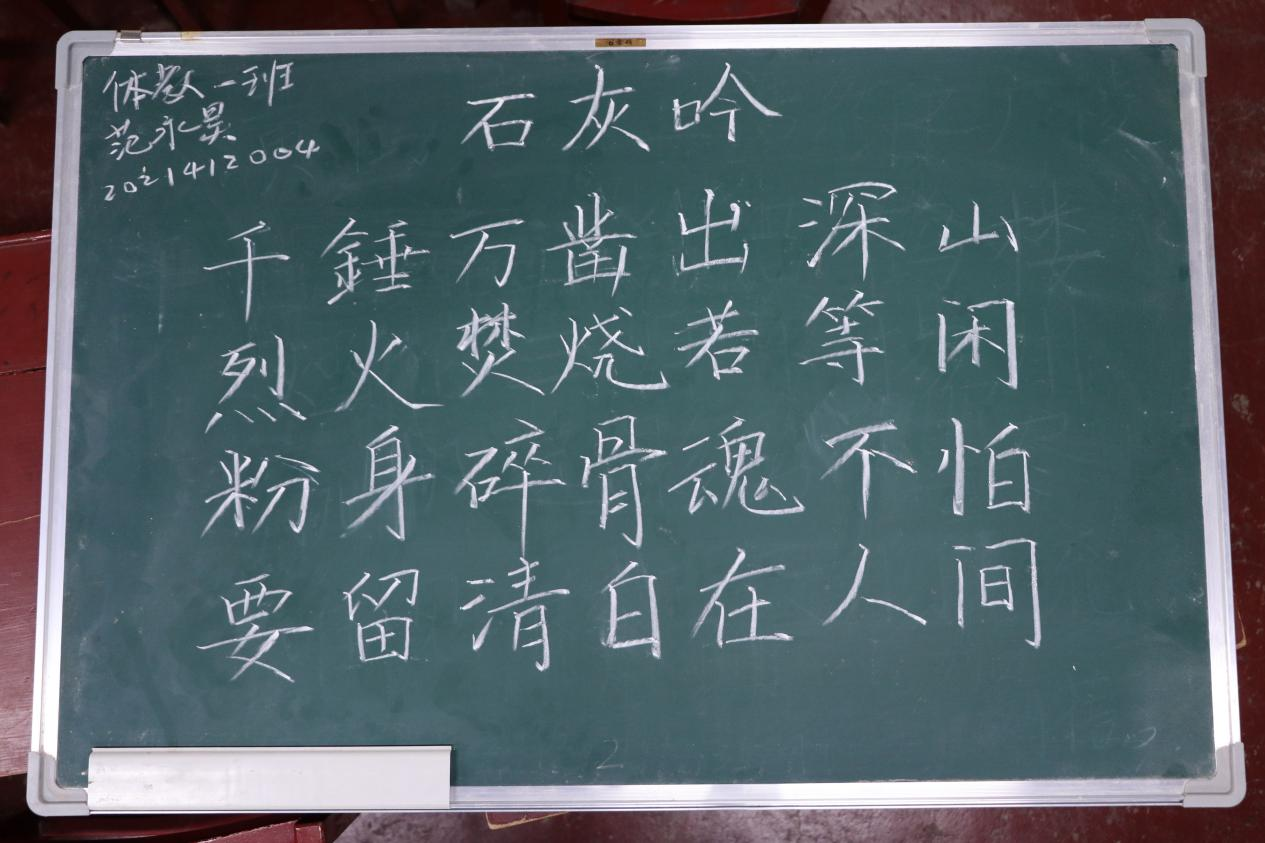 体教一班
范永昊
2021412004
石灰吟
千錘万凿出深山
烈火焚烧若等闲
粉身碎骨魂不怕
要留清白在人间